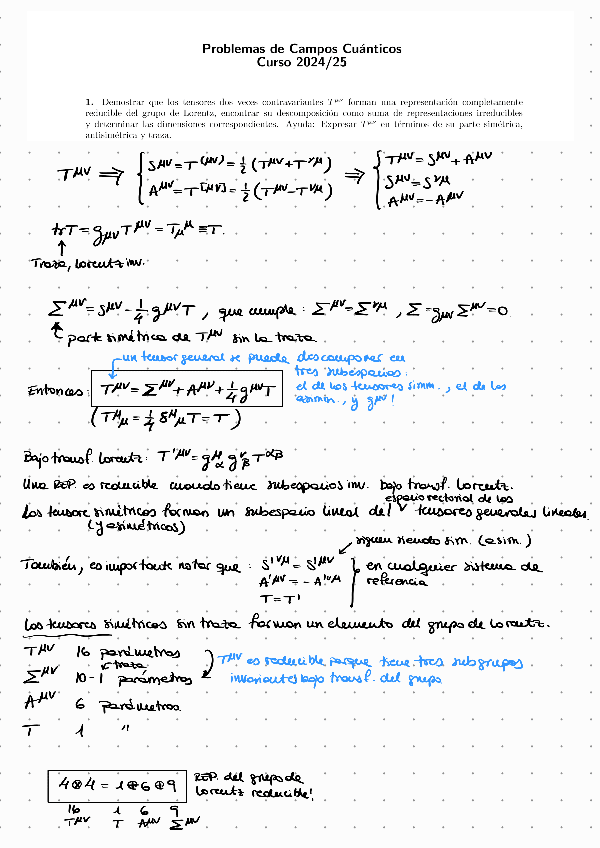 Problemas de Campos Cuánticos
Curso 2024/25
1. Demostrar que los tensores dos veces contravariantes T^μν forman una representación completamente
reducible del grupo de Lorentz, encontrar su descomposición como suma de representaciones irreducibles
y determinar las dimensiones correspondientes. Ayuda: Expresar T^μν en términos de su parte simétrica,
antisimétrica y traza.
T^μν ⟹ { S^μν = T^(μν) = 1/2 (T^μν + T^νμ) ⟹ { T^μν = S^μν + A^μν
A^μν = T^[μν] = 1/2 (T^μν - T^νμ) S^μν = S^νμ
A^μν = -A^νμ
trT = g_μν T^μν = T_μ^μ ≡ T.
↑
Traza, Lorentz inv.
Σ^μν = S^μν - 1/4 g^μν T , que cumple : Σ^μν = Σ^νμ , Σ = g_μν Σ^μν = 0
parte simétrica de T^μν sin la traza
un tensor general se puede descomponer en
tres subespacios:
Entonces: T^μν = Σ^μν + A^μν + 1/4 g^μν T
el de los tensores simm., el de los
antisim., y g^μν!
( T^μ_μ = 1/4 δ^μ_μ T = T )
Bajo transf. Lorentz: T'^μν = g^μ_α g^ν_β T^αβ
Una REP. es reducible cuando tiene subespacios inv. bajo transf. Lorentz.
espacio vectorial de los
Los tensores simétricos forman un subespacio lineal del tensores generales lineales.
(y asimétricos)
siguen siendo sim. (asim.)
También, es importante notar que : S'^νμ = S'^μν
A'^μν = -A'^νμ
T = T'
en cualquier sistema de
referencia
Los tensores simétricos sin traza forman un elemento del grupo de Lorentz.
T^μν 16 parámetros
traza
Σ^μν 10 - 1 parámetros
A^μν 6 parámetros
T 1 "
T^μν es reducible porque tiene tres subgrupos
invariantes bajo transf. del grupo
4 ⊗ 4 = 1 ⊕ 6 ⊕ 9
REP. del grupo de
Lorentz reducible!
16 1 6 9
T^μν T A^μν Σ^μν